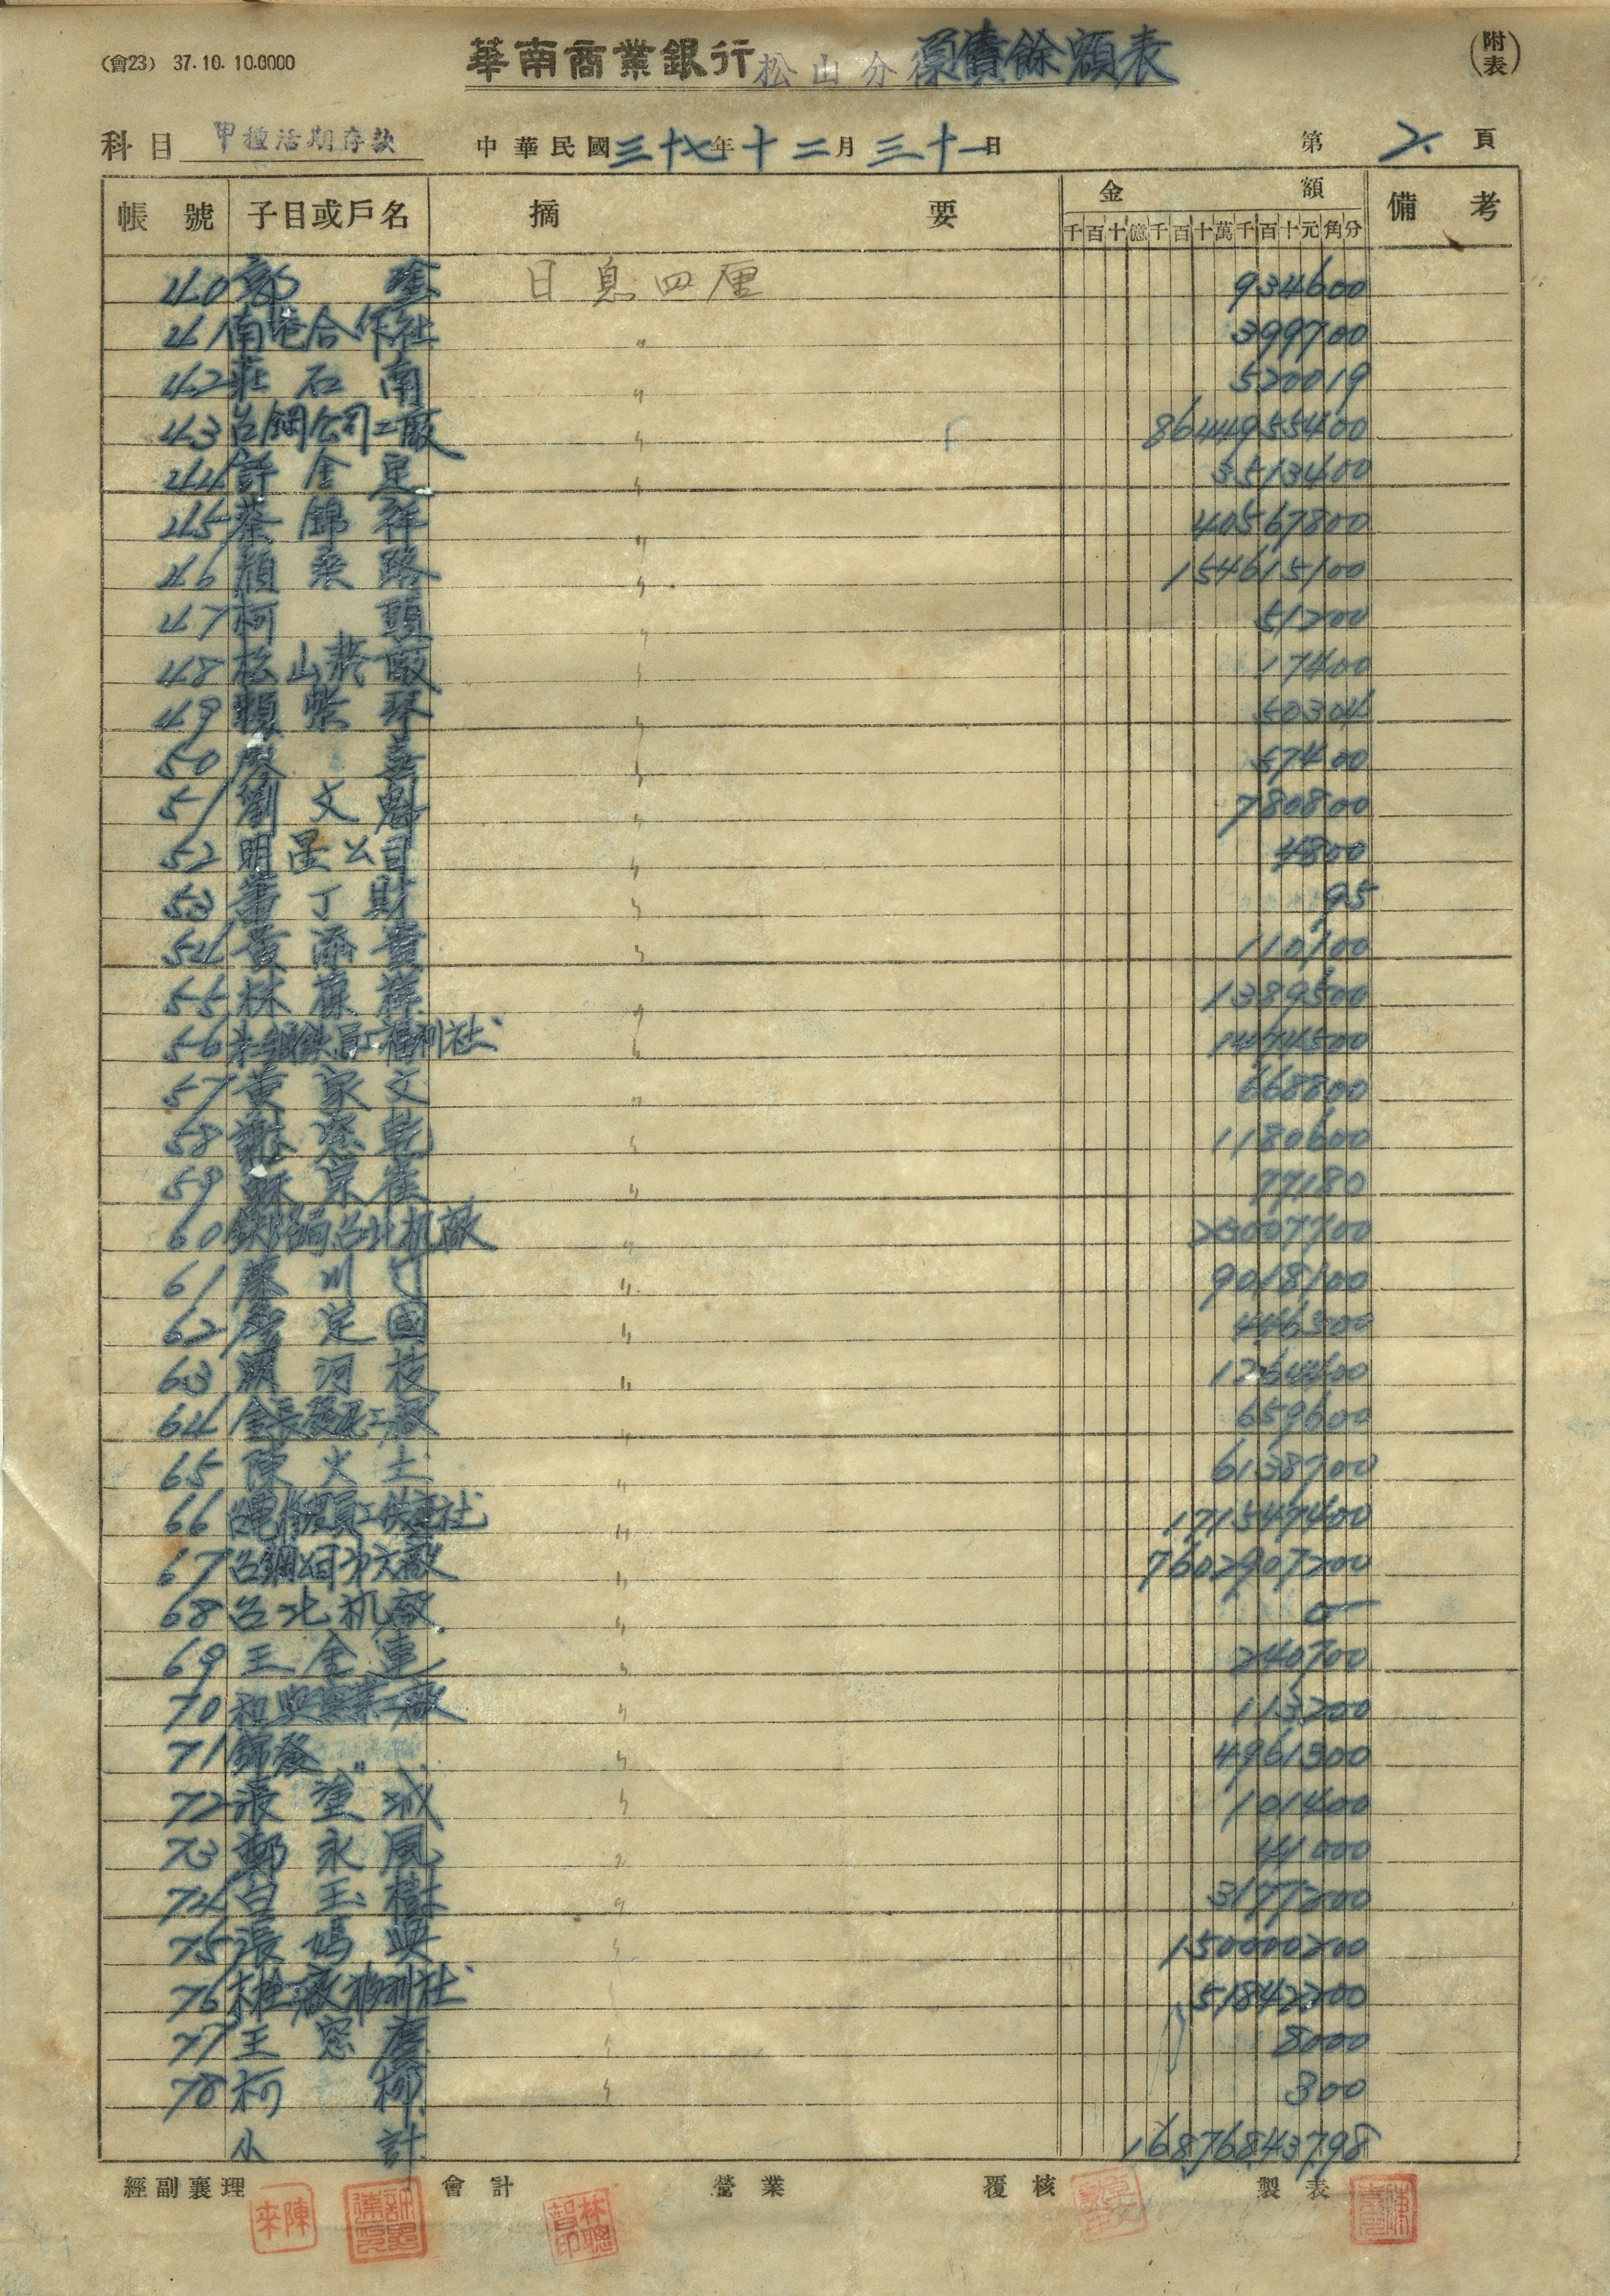 (會23) 37.10.10.0000
華南商業銀行松山分行負債餘額表
(附表)
科目 甲種活期存款 中華民國三十七年十二月三十一日 第2頁
帳號 子目或戶名 摘要 金額 備考
千百十億千百十萬千百十元角分
40 郭 塗 日息四厘 934600
41 南港合作社 〃 399700
42 莊石南 〃 520019
43 台鋼公司工廠 〃 8644955400
44 許金定 〃 3513400
45 蔡錦祥 〃 40567800
46 顏 路 〃 154615100
47 柯 頭 〃 51200
48 松山 廠 〃 17400
49 顏紫琴 〃 50304
50 喜 〃 57400
51 劉文魁 〃 780800
52 明星公司 〃 4800
53 蕭丁財 〃 95
54 黃添貴 〃 110100
55 林 祥 〃 1389500
56 員工福利社 〃 1474500
57 黃家文 〃 668800
58 謝 乾 〃 1180600
59 蘇宗 〃 77180
60 鉄路局台北机廠 〃 23007700
61 蔡川竹 〃 9018100
62 定國 〃 446300
63 河枝 〃 1264400
64 金長發 工廠 〃 659600
65 陳火土 〃 6138700
66 員工供應社 〃 171547400
67 台鋼公司才六廠 〃 7602907200
68 台北机廠 〃 0
69 王金車 〃 240700
70 和興 工廠 〃 113200
71 錦發 〃 〃 4961300
72 張塗城 〃 101400
73 鄭永鳳 〃 441000
74 白玉樹 〃 3177200
75 張媽興 〃 150000200
76 廠福利社 〃 51842200
77 王窓 〃 8000
78 柯 柳 〃 300
小計 16876843798
經副襄理 會計 營業 覆核 製表
陳來
林聰智印